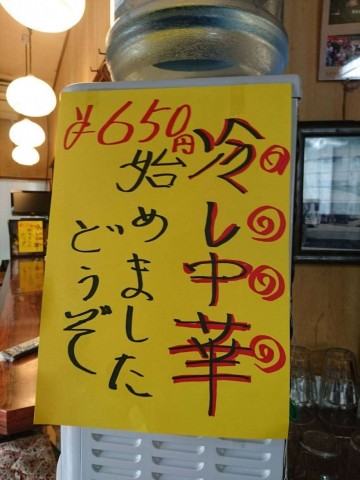 冷し中華
始めました
どうぞ
¥650円